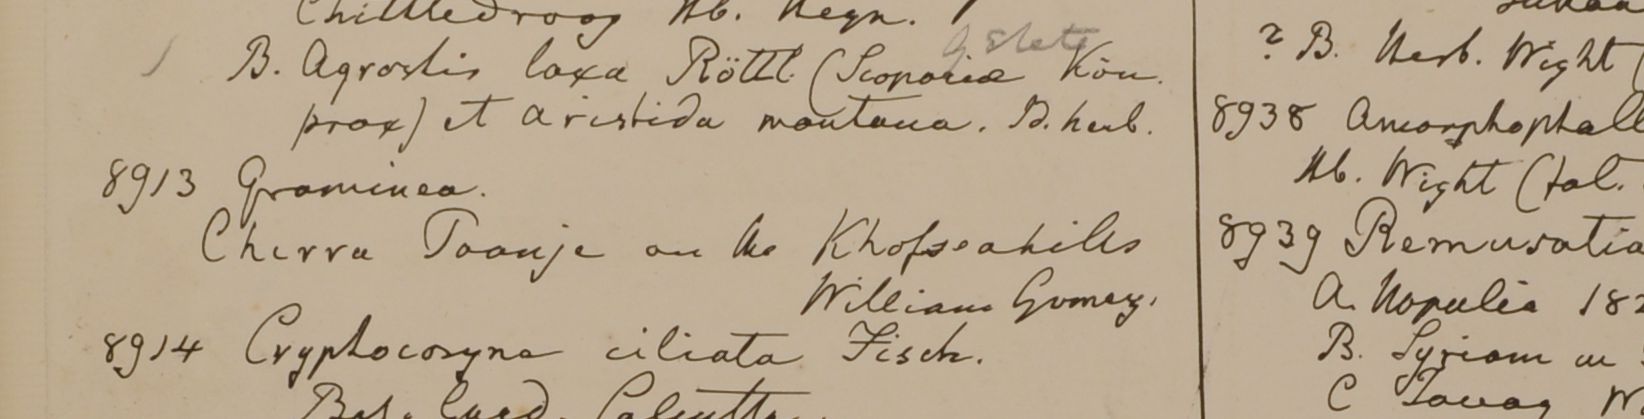 Chittledroog Hb. Heyn.
B. Agrostis laxa Röttl. (Scopariæ Kön.
prox) et Aristida montana. B. herb.
8913 Graminea.
Cherra Poonje on the Khofseahills
William Gomez.
8914 Cryptocoryne ciliata Fisch.
Bot. Gard. Calcutta.
? B. Herb. Wight (
8938 Amorphophall
Hb. Wight (fol.
8939 Remusatia
A. Napalia 182
B. Syriam
C Tavoy W.